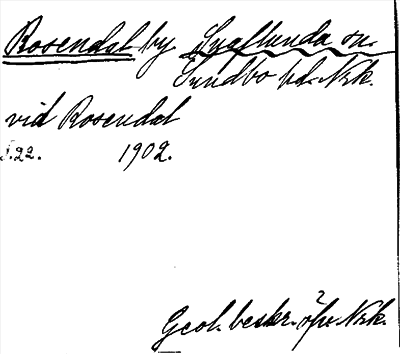 Rosendal by Lysflunda sn.
Sundbo hd. Nrk.
vid Rosendal
s. 22. 1902.
Geol. beskr. öfv. Nrk.